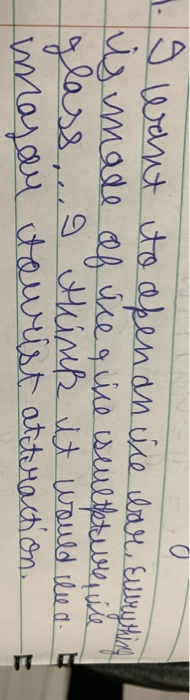 1. I want to open an ice bar, everything
is made of ice, ice sculpture, ice
glass,... I think it would be a
major tourist attraction.